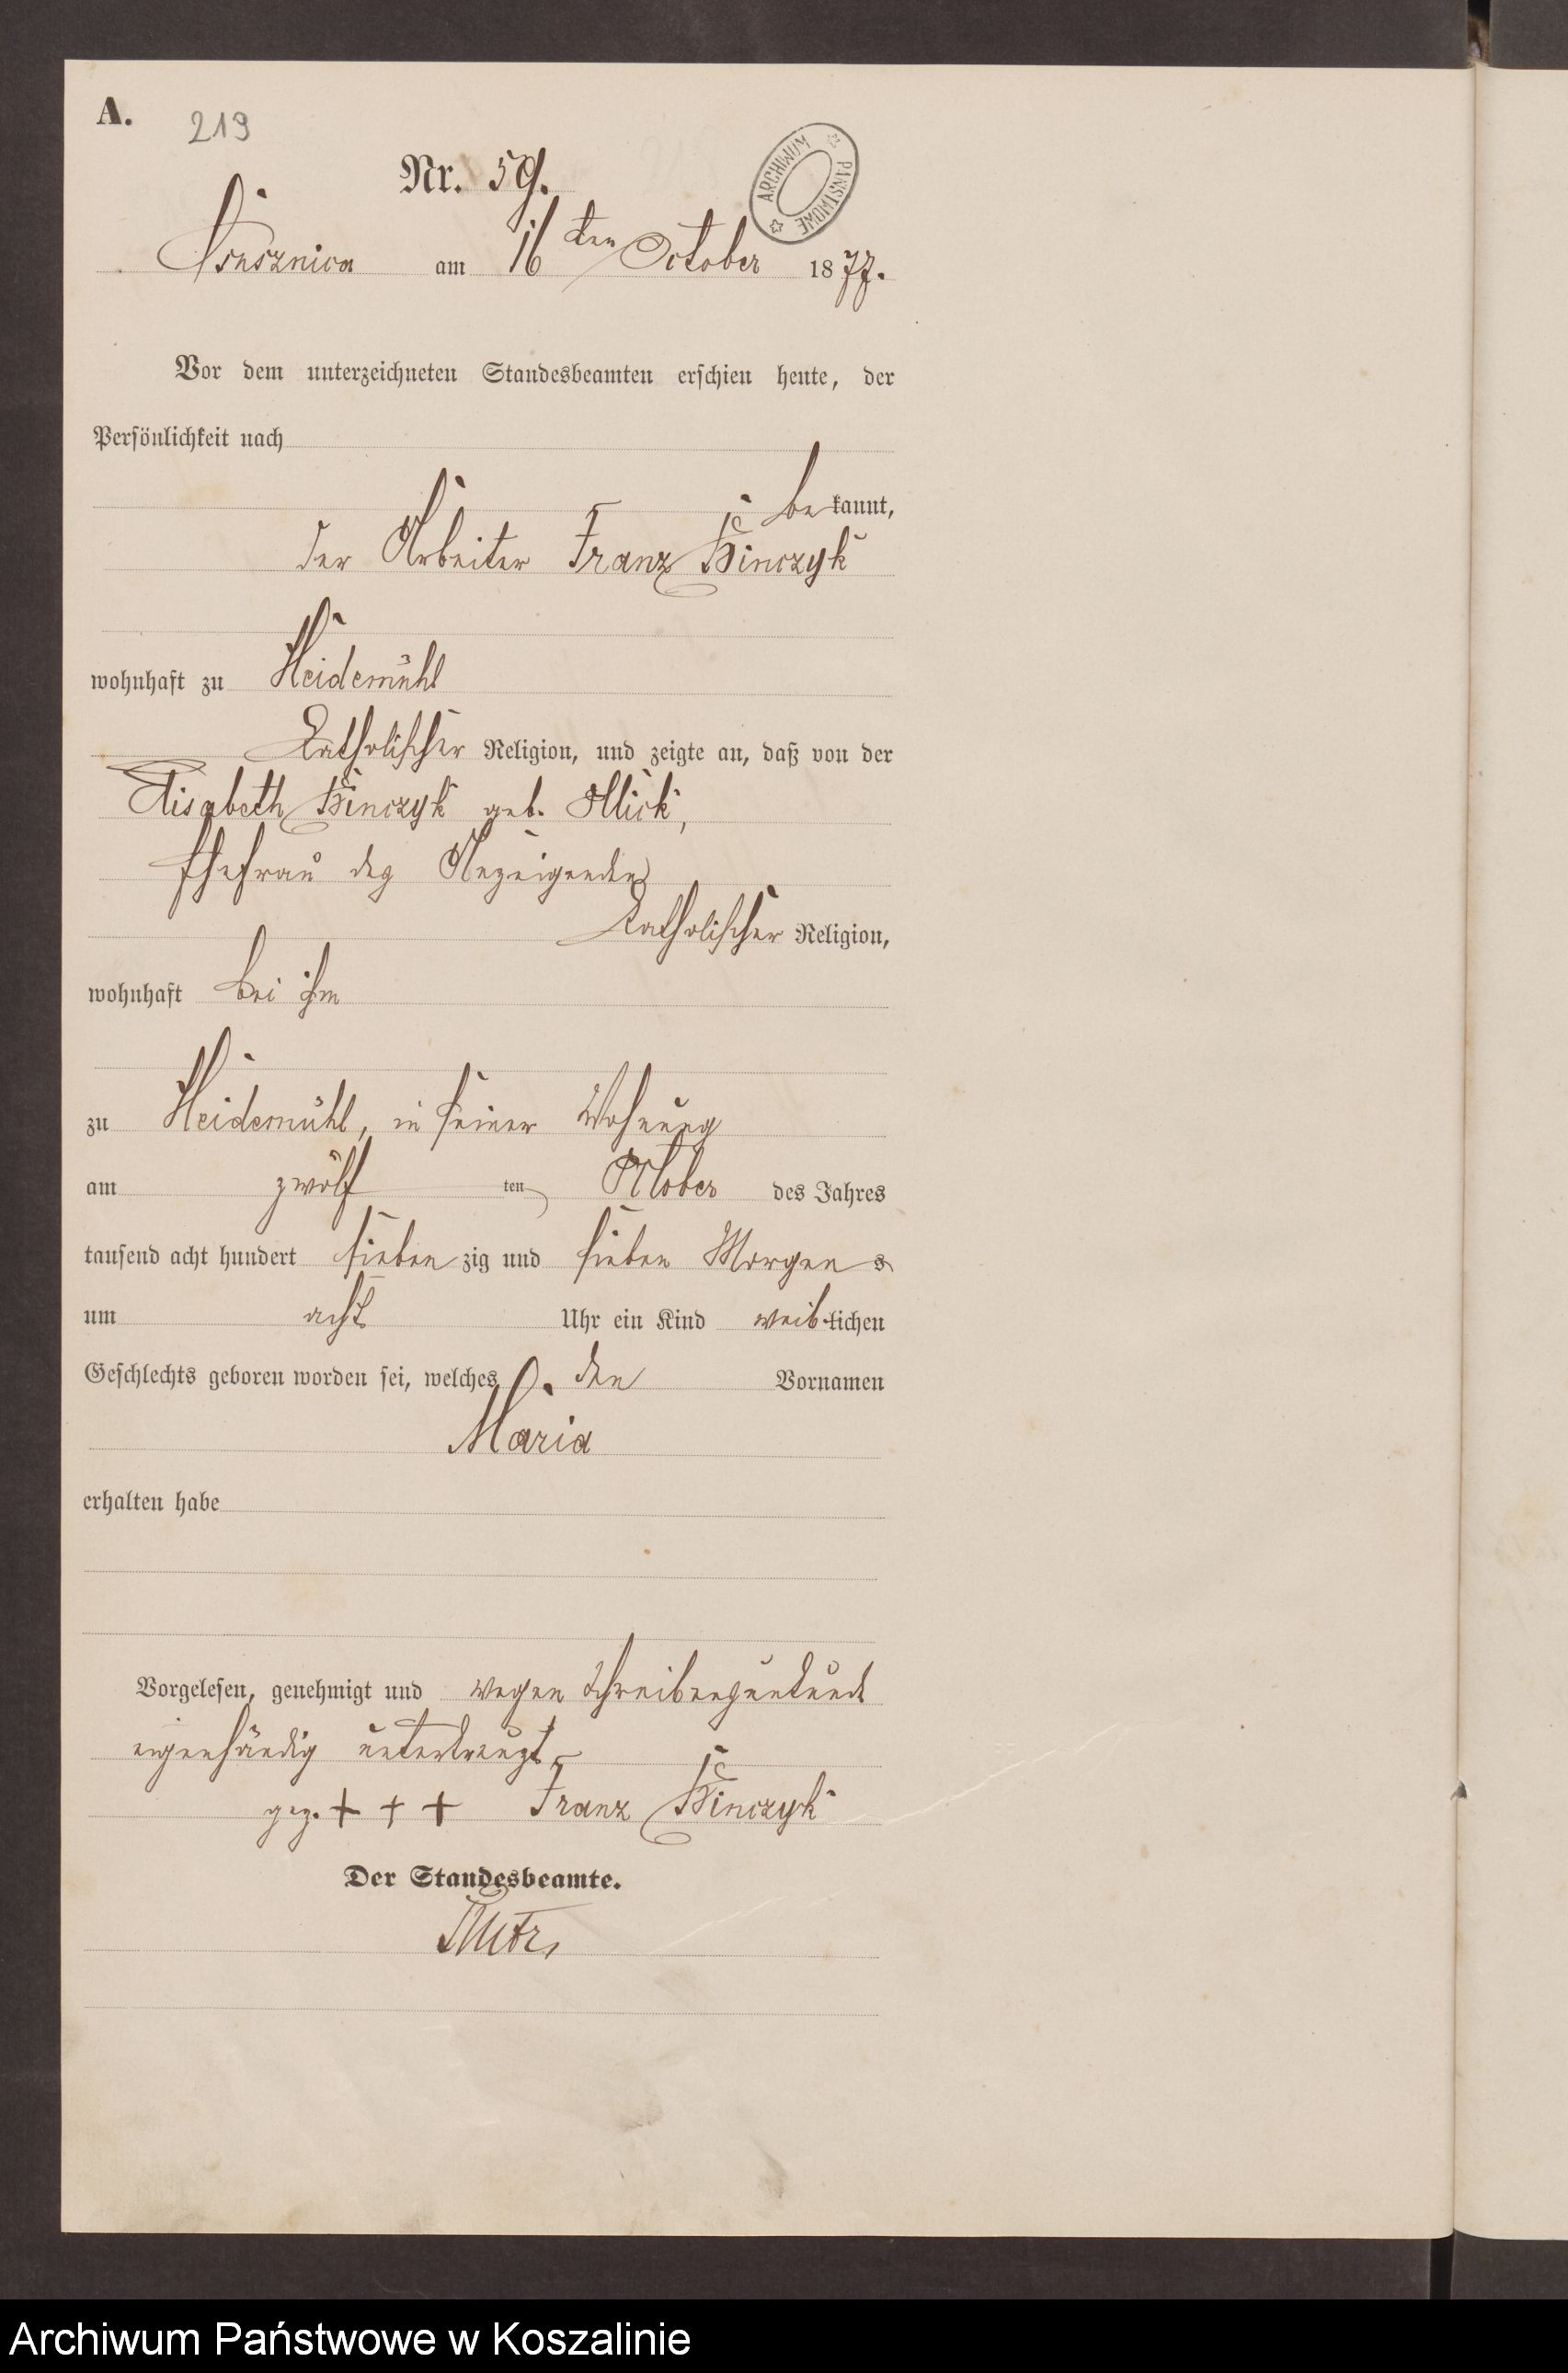 A.
219
Nr. 59.
ARCHIWUM PAŃSTWOWE
am 16ten October 1877.
Vor dem unterzeichneten Standesbeamten erschien heute, der
Persönlichkeit nach
bekannt,
der Arbeiter Franz
wohnhaft zu Heidemühl
Katholischer Religion, und zeigte an, daß von der
Elisabeth geb.
Ehefrau des Anzeigenden
Katholischer Religion,
wohnhaft bei ihm
zu Heidemühl, in seiner Wohnung
am zwölf ten Oktober des Jahres
tausend acht hundert sieben zig und sieben Morgens
um acht Uhr ein Kind weiblichen
Geschlechts geboren worden sei, welches den Vornamen
Maria
erhalten habe
Vorgelesen, genehmigt und wegen Schreibensunkunde
eigenhändig unterkreuzt
gez. + + + Franz
Der Standesbeamte.
Archiwum Państwowe w Koszalinie